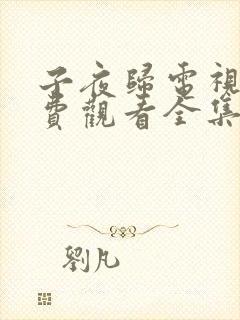 子夜歸電視
費觀看全集
劉凡